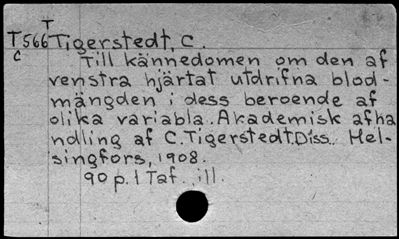 T
T566 Tigerstedt, C.
C
Till kännedomen om den af
venstra hjärtat utdrifna blod-
mängden i dess beroende af
olika variabla. Akademisk afha
ndling af C. Tigerstedt. Diss.. Hel-
singfors, 1908.
90 p. 1 Taf. ill.